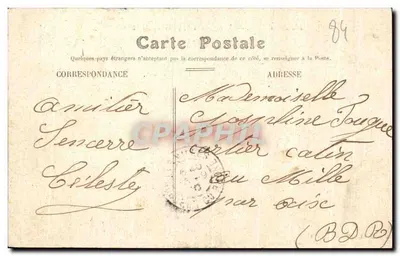 84
Carte Postale
Quelques pays étrangers n'acceptant pas la correspondance de ce côté, se renseigner à la Poste.
CORRESPONDANCE
ADRESSE
amitiér
Sencerre
Céleste
Mademoiselle
Josephine
cartier catin
au Mille
par aix
(B.D.R)
CPAPHIL